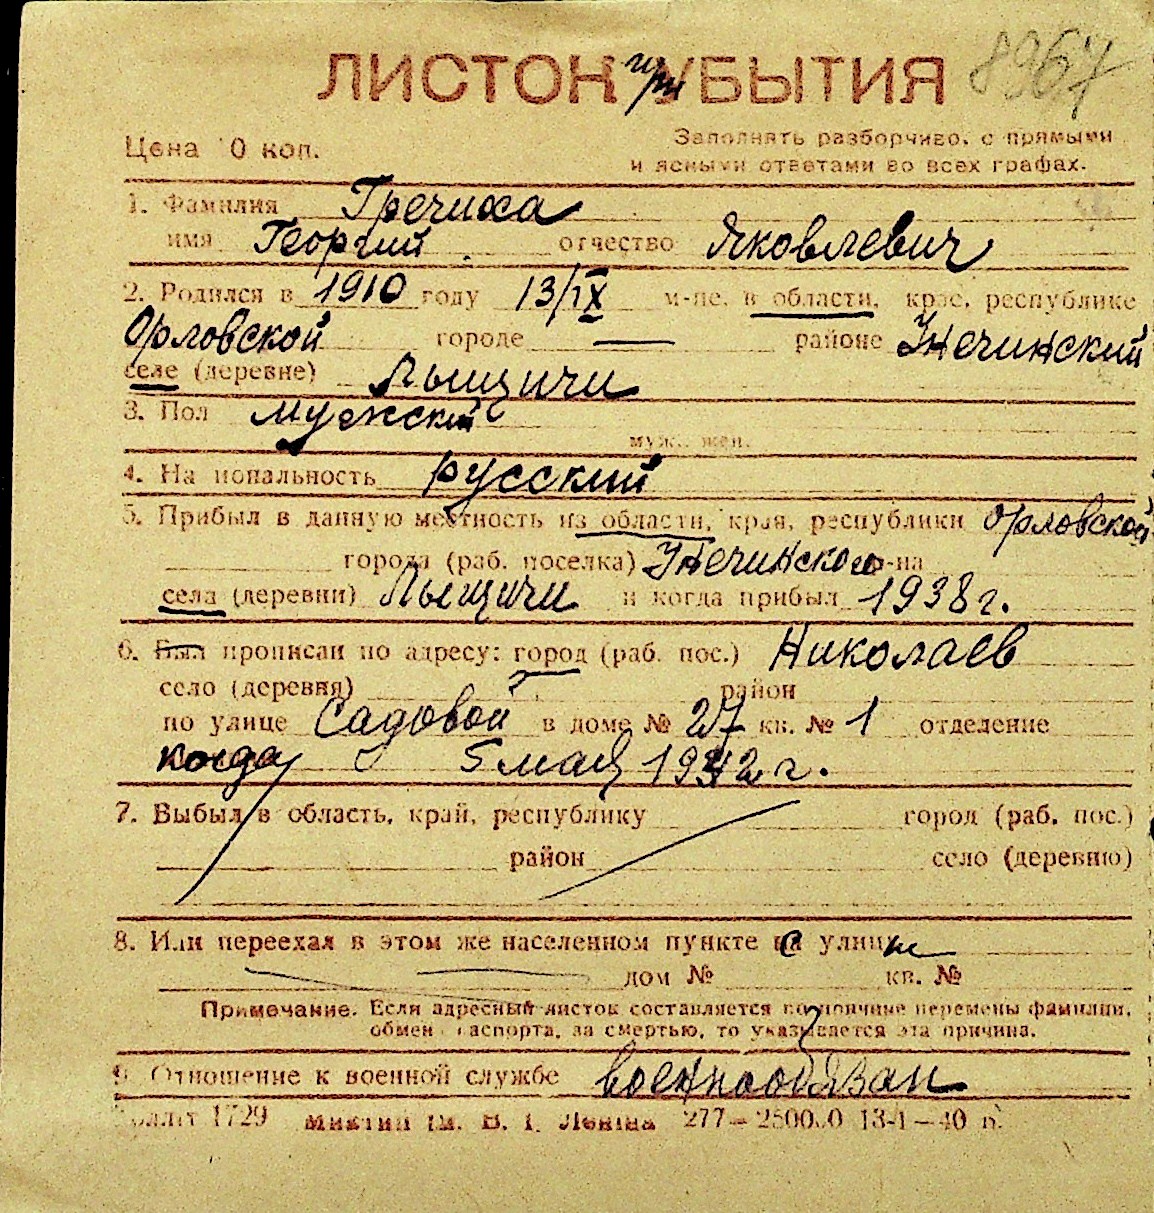 ЛИСТОК при УБЫТИЯ 8967
Цена 10 коп.
Заполнять разборчиво, с прямыми
и ясными ответами во всех графах.
1. Фамилия Гречиха
имя Георгий отчество Яковлевич
2. Родился в 1910 году 13/IX м-це, в области, крае, республике
Орловской городе — районе Унечинский
селе (деревне) Лыщичи
3. Пол мужский
муж., жен.
4. Национальность русский
5. Прибыл в данную местность из области, края, республики Орловской
города (раб. поселка) Унечинского р-на
села (деревни) Лыщичи и когда прибыл 1938 г.
6. Был прописан по адресу: город (раб. пос.) Николаев
село (деревня) район
по улице Садовой в доме № 27 кв. № 1 отделение
когда 5 мая 1942 г.
7. Выбыл в область, край, республику город (раб. пос.)
район село (деревню)
8. Или переехал в этом же населенном пункте с улицы
дом № кв. №
Примечание. Если адресный листок составляется по причине перемены фамилии,
обмен паспорта, за смертью, то указывается эта причина.
9. Отношение к военной службе военнообязан
1729 им. В. І. Леніна 277— 250000 13-I—40 р.